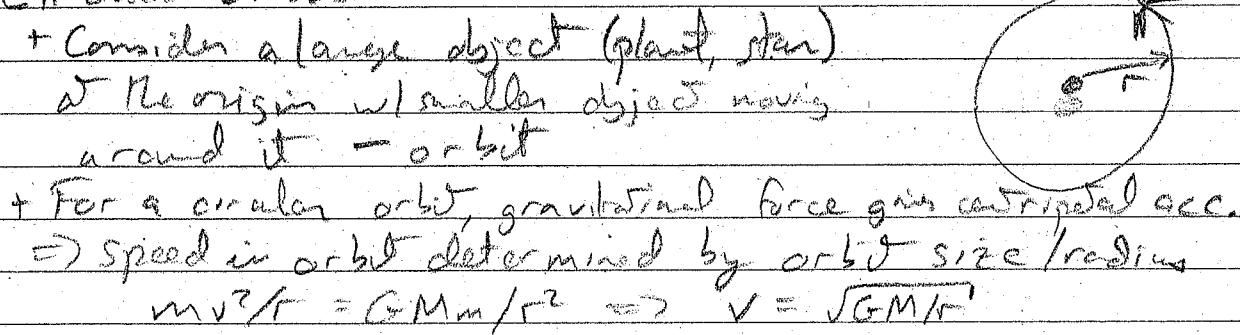 + Consider a large object (planet, star)
r
at the origin w/ smaller object moving
around it - orbit
+ For a circular orbit, gravitational force gives centripetal acc.
=> Speed in orbit determined by orbit size/radius
mv²/r = GMm/r² => v = √GM/r